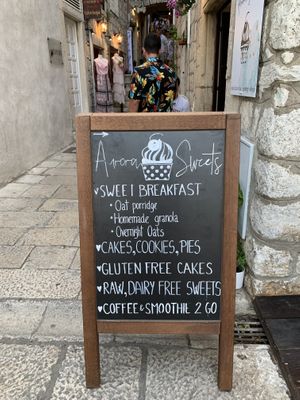 Arora Sweets
SWEET BREAKFAST
Oat porridge
Homemade granola
Overnight Oats
CAKES, COOKIES, PIES
GLUTEN FREE CAKES
RAW, DAIRY FREE SWEETS
COFFEE & SMOOTHIE 2 GO